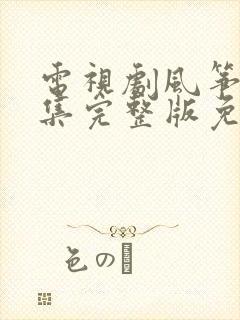 電視劇風箏
集完整版免
色の